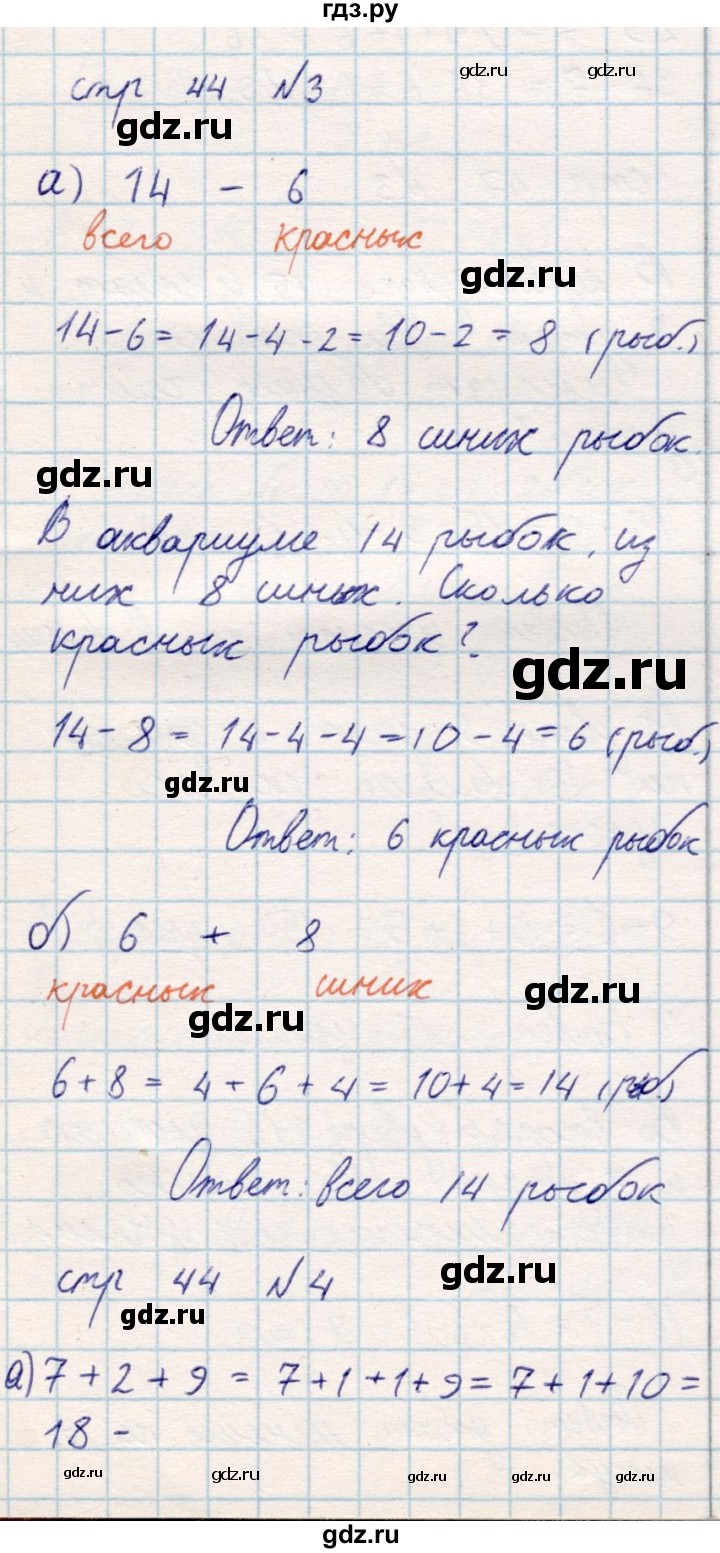 гдз.ру
стр 44 №3
gdz.ru gdz.ru
gdz.ru
а) 14 - 6
всего красных
gdz.ru
14-6= 14-4-2= 10-2 = 8 (рыб.)
Ответ: 8 синих рыбок.
gdz.ru
В аквариуме 14 рыбок, из
них 8 синих. Сколько
красных рыбок?
gdz.ru
14-8 = 14-4-4=10-4=6 (рыб.)
gdz.ru
Ответ: 6 красных рыбок
б) 6 + 8
красных синих
gdz.ru
gdz.ru
6+8 = 4+6+4= 10+4=14 (рыб.)
Ответ: всего 14 рыбок
стр 44 №4
gdz.ru
gdz.ru
а) 7+2+9 = 7+1+1+9=7+1+10=
18 -
gdz.ru gdz.ru gdz.ru gdz.ru
gdz.ru